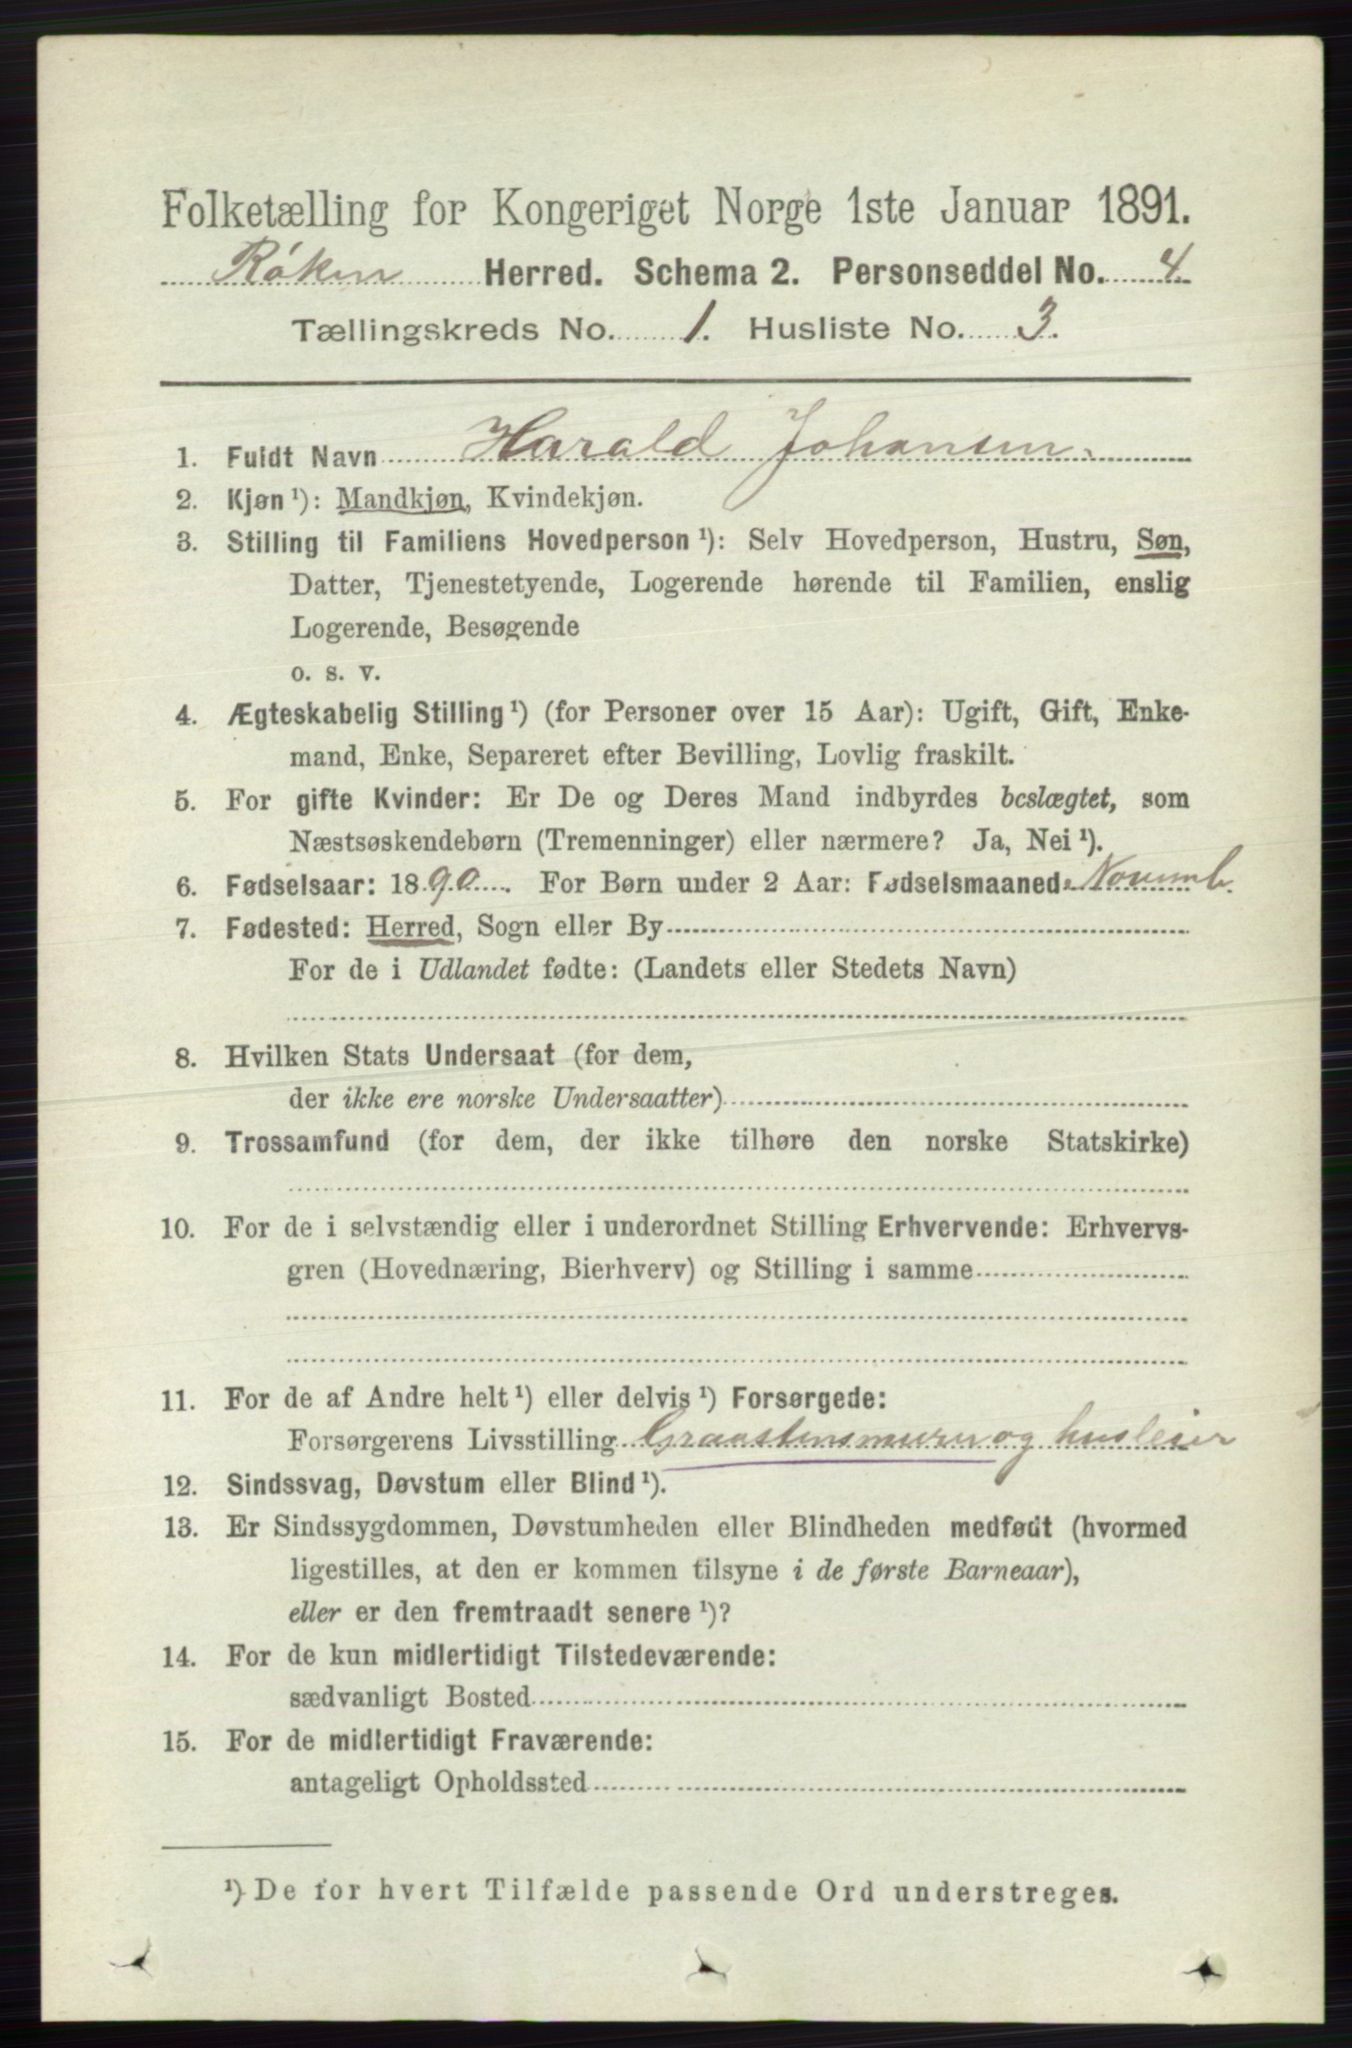 Folketælling for Kongeriget Norge 1ste Januar 1891.
Røken Herred. Schema 2. Personseddel No. 4.
Tællingskreds No. 1. Husliste No. 3.
1. Fuldt Navn Harald Johansen.
2. Kjøn ¹): Mandkjøn, Kvindekjøn.
3. Stilling til Familiens Hovedperson ¹): Selv Hovedperson, Hustru, Søn,
Datter, Tjenestetyende, Logerende hørende til Familien, enslig
Logerende, Besøgende
o. s. v.
4. Ægteskabelig Stilling ¹) (for Personer over 15 Aar): Ugift, Gift, Enke-
mand, Enke, Separeret efter Bevilling, Lovlig fraskilt.
5. For gifte Kvinder: Er De og Deres Mand indbyrdes beslægtet, som
Næstsøskendebørn (Tremenninger) eller nærmere? Ja, Nei ¹).
6. Fødselsaar: 1890. For Børn under 2 Aar: Fødselsmaaned: Novemb.
7. Fødested: Herred, Sogn eller By
For de i Udlandet fødte: (Landets eller Stedets Navn)
8. Hvilken Stats Undersaat (for dem,
der ikke ere norske Undersaatter)
9. Trossamfund (for dem, der ikke tilhøre den norske Statskirke)
10. For de i selvstændig eller i underordnet Stilling Erhvervende: Erhvervs-
gren (Hovednæring, Bierhverv) og Stilling i samme
11. For de af Andre helt ¹) eller delvis ¹) Forsørgede:
Forsørgerens Livsstilling Graastensmurer og husleier
12. Sindssvag, Døvstum eller Blind ¹).
13. Er Sindssygdommen, Døvstumheden eller Blindheden medfødt (hvormed
ligestilles, at den er kommen tilsyne i de første Barneaar),
eller er den fremtraadt senere ¹)?
14. For de kun midlertidigt Tilstedeværende:
sædvanligt Bosted
15. For de midlertidigt Fraværende:
antageligt Opholdssted
¹) De for hvert Tilfælde passende Ord understreges.